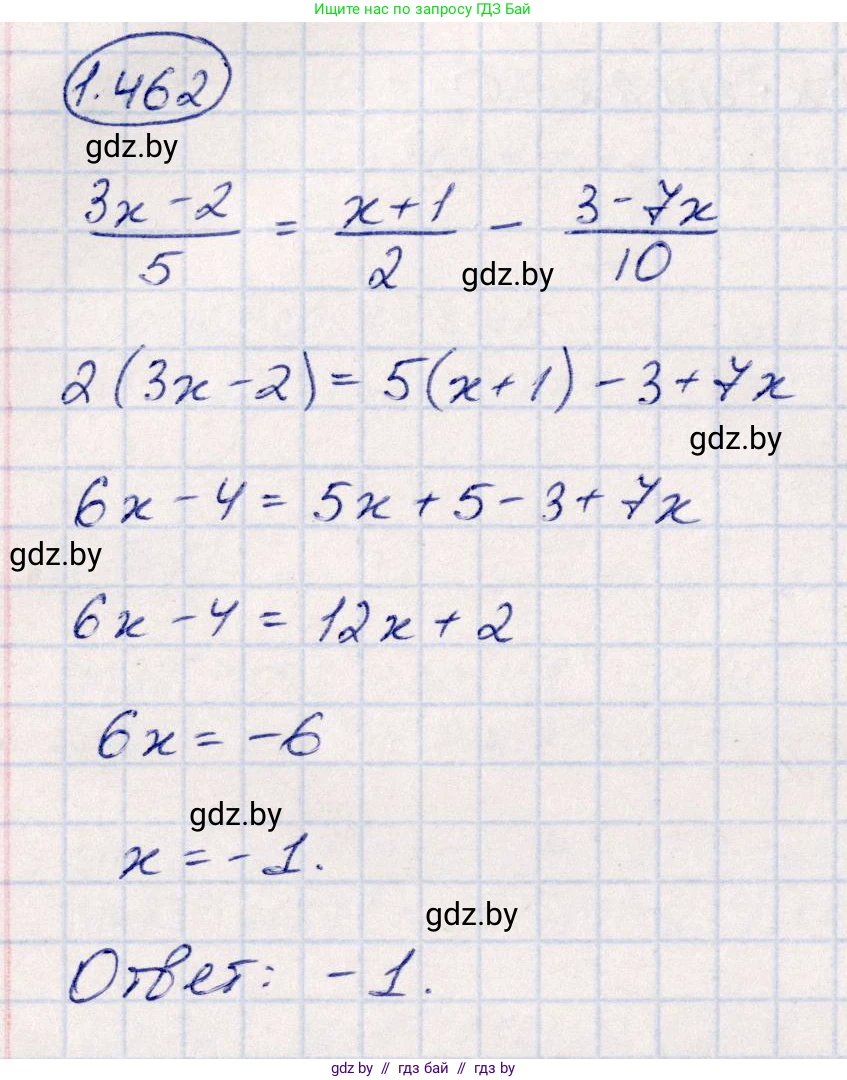 Ищите нас по запросу ГДЗ Бай
1.462
gdz.by
(3x - 2)/5 = (x + 1)/2 - (3 - 7x)/10
gdz.by
2(3x - 2) = 5(x + 1) - 3 + 7x
gdz.by
6x - 4 = 5x + 5 - 3 + 7x
gdz.by
6x - 4 = 12x + 2
6x = -6
gdz.by
x = -1.
gdz.by
Ответ: -1.
gdz.by // гдз бай // гдз by